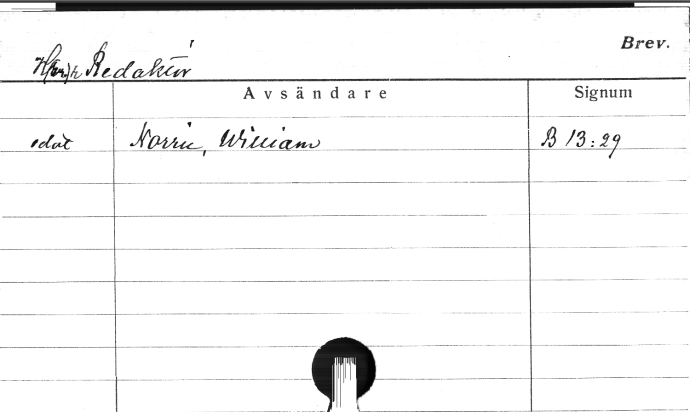 Brev.
Redaktör
Avsändare Signum
odat Norrie, William B 13:29